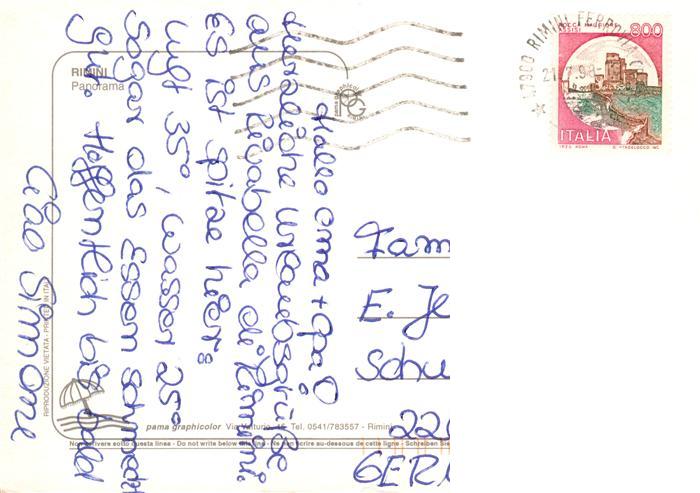 RIMINI
Panorama
Hallo Oma + Opa!
Herzliche Urlaubsgrüße
aus Rivabella di Rimini.
Es ist spitze hier:
Luft 35°, Wasser 25°
Sogar das Essen schmeckt
gut. Hoffentlich bis bald
Ciao Simone
Fam
E. Je
Schu
222
GER
800
ITALIA
RIMINI FERROVIA
RIPRODUZIONE VIETATA - PRINTED IN ITALY
pama graphicolor Via Vetturio, 15 Tel. 0541/783557 - Rimini
Non scrivere sotto questa linea - Do not write below this line - Ne pas écrire au-dessous de cette ligne - Schreiben Sie